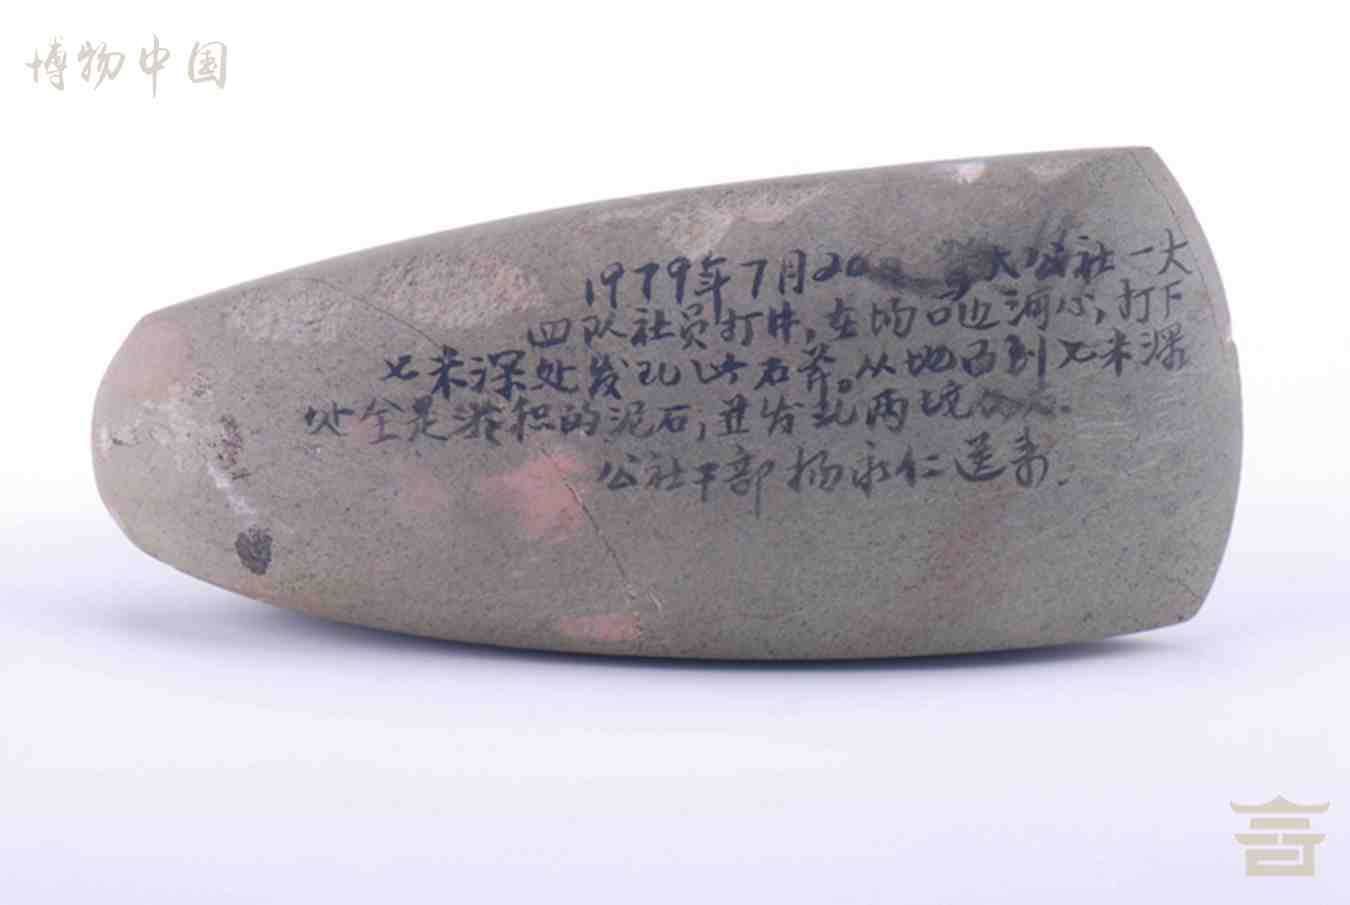 博物中国
1979年7月20 大公社一大
四队社员打井,在沟口边河心,打下
七米深处发现此石斧。从地面到七米深
处全是淤积的泥石,并发现两块
公社干部杨永仁送来.